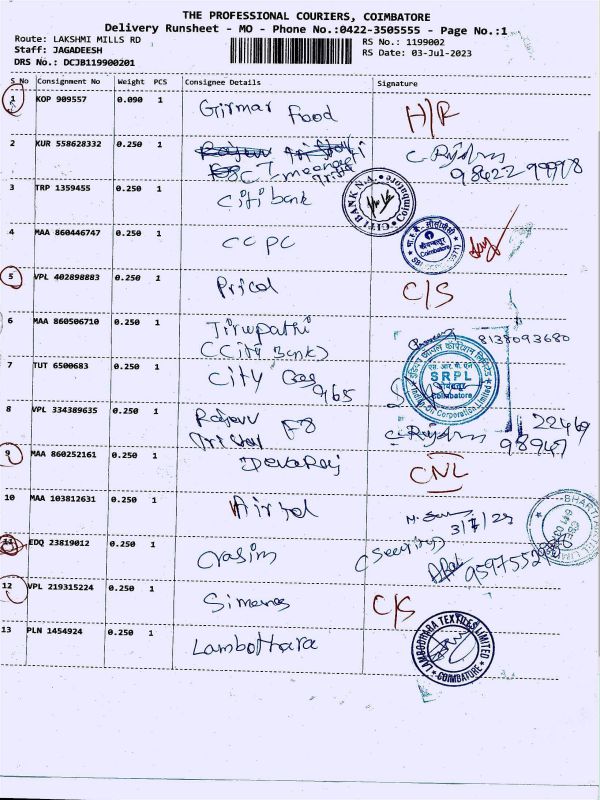 THE PROFESSIONAL COURIERS, COIMBATORE
Delivery Runsheet - MO - Phone No.:0422-3505555 - Page No.:1
Route: LAKSHMI MILLS RD
RS No.: 1199002
Staff: JAGADEESH
RS Date: 03-Jul-2023
DRS No.: DCJB119900201
S No Consignment No Weight PCS Consignee Details Signature
1 KOP 909557 0.090 1 Girmar Food H/R
2 KUR 558628332 0.250 1
3 TRP 1359455 0.250 1 Citi bank
CITI BANK N.A. Coimbatore
4 MAA 860446747 0.250 1 CCPC
Coimbatore
5 VPL 402898883 0.250 1 Pricol C/S
6 MAA 860506710 0.250 1 Tirupathi 8138093680
(City Bank)
7 TUT 6500683 0.250 1 City Gas
965
एस. आर. पी. एल
SRPL
कोयंबत्तूर
Coimbatore
Indian Oil Corporation Limited
8 VPL 334389635 0.250 1 Rajeev F8
22469
98947
9 MAA 860252161 0.250 1 Devaraj CNL
10 MAA 103812631 0.250 1 Airtel
11 EDQ 23819012 0.250 1 (Security)
12 VPL 219315224 0.250 1 Simens C/S
13 PLN 1454924 0.250 1 Lambothara
LAMBODHARA TEXTILES LIMITED
COIMBATORE